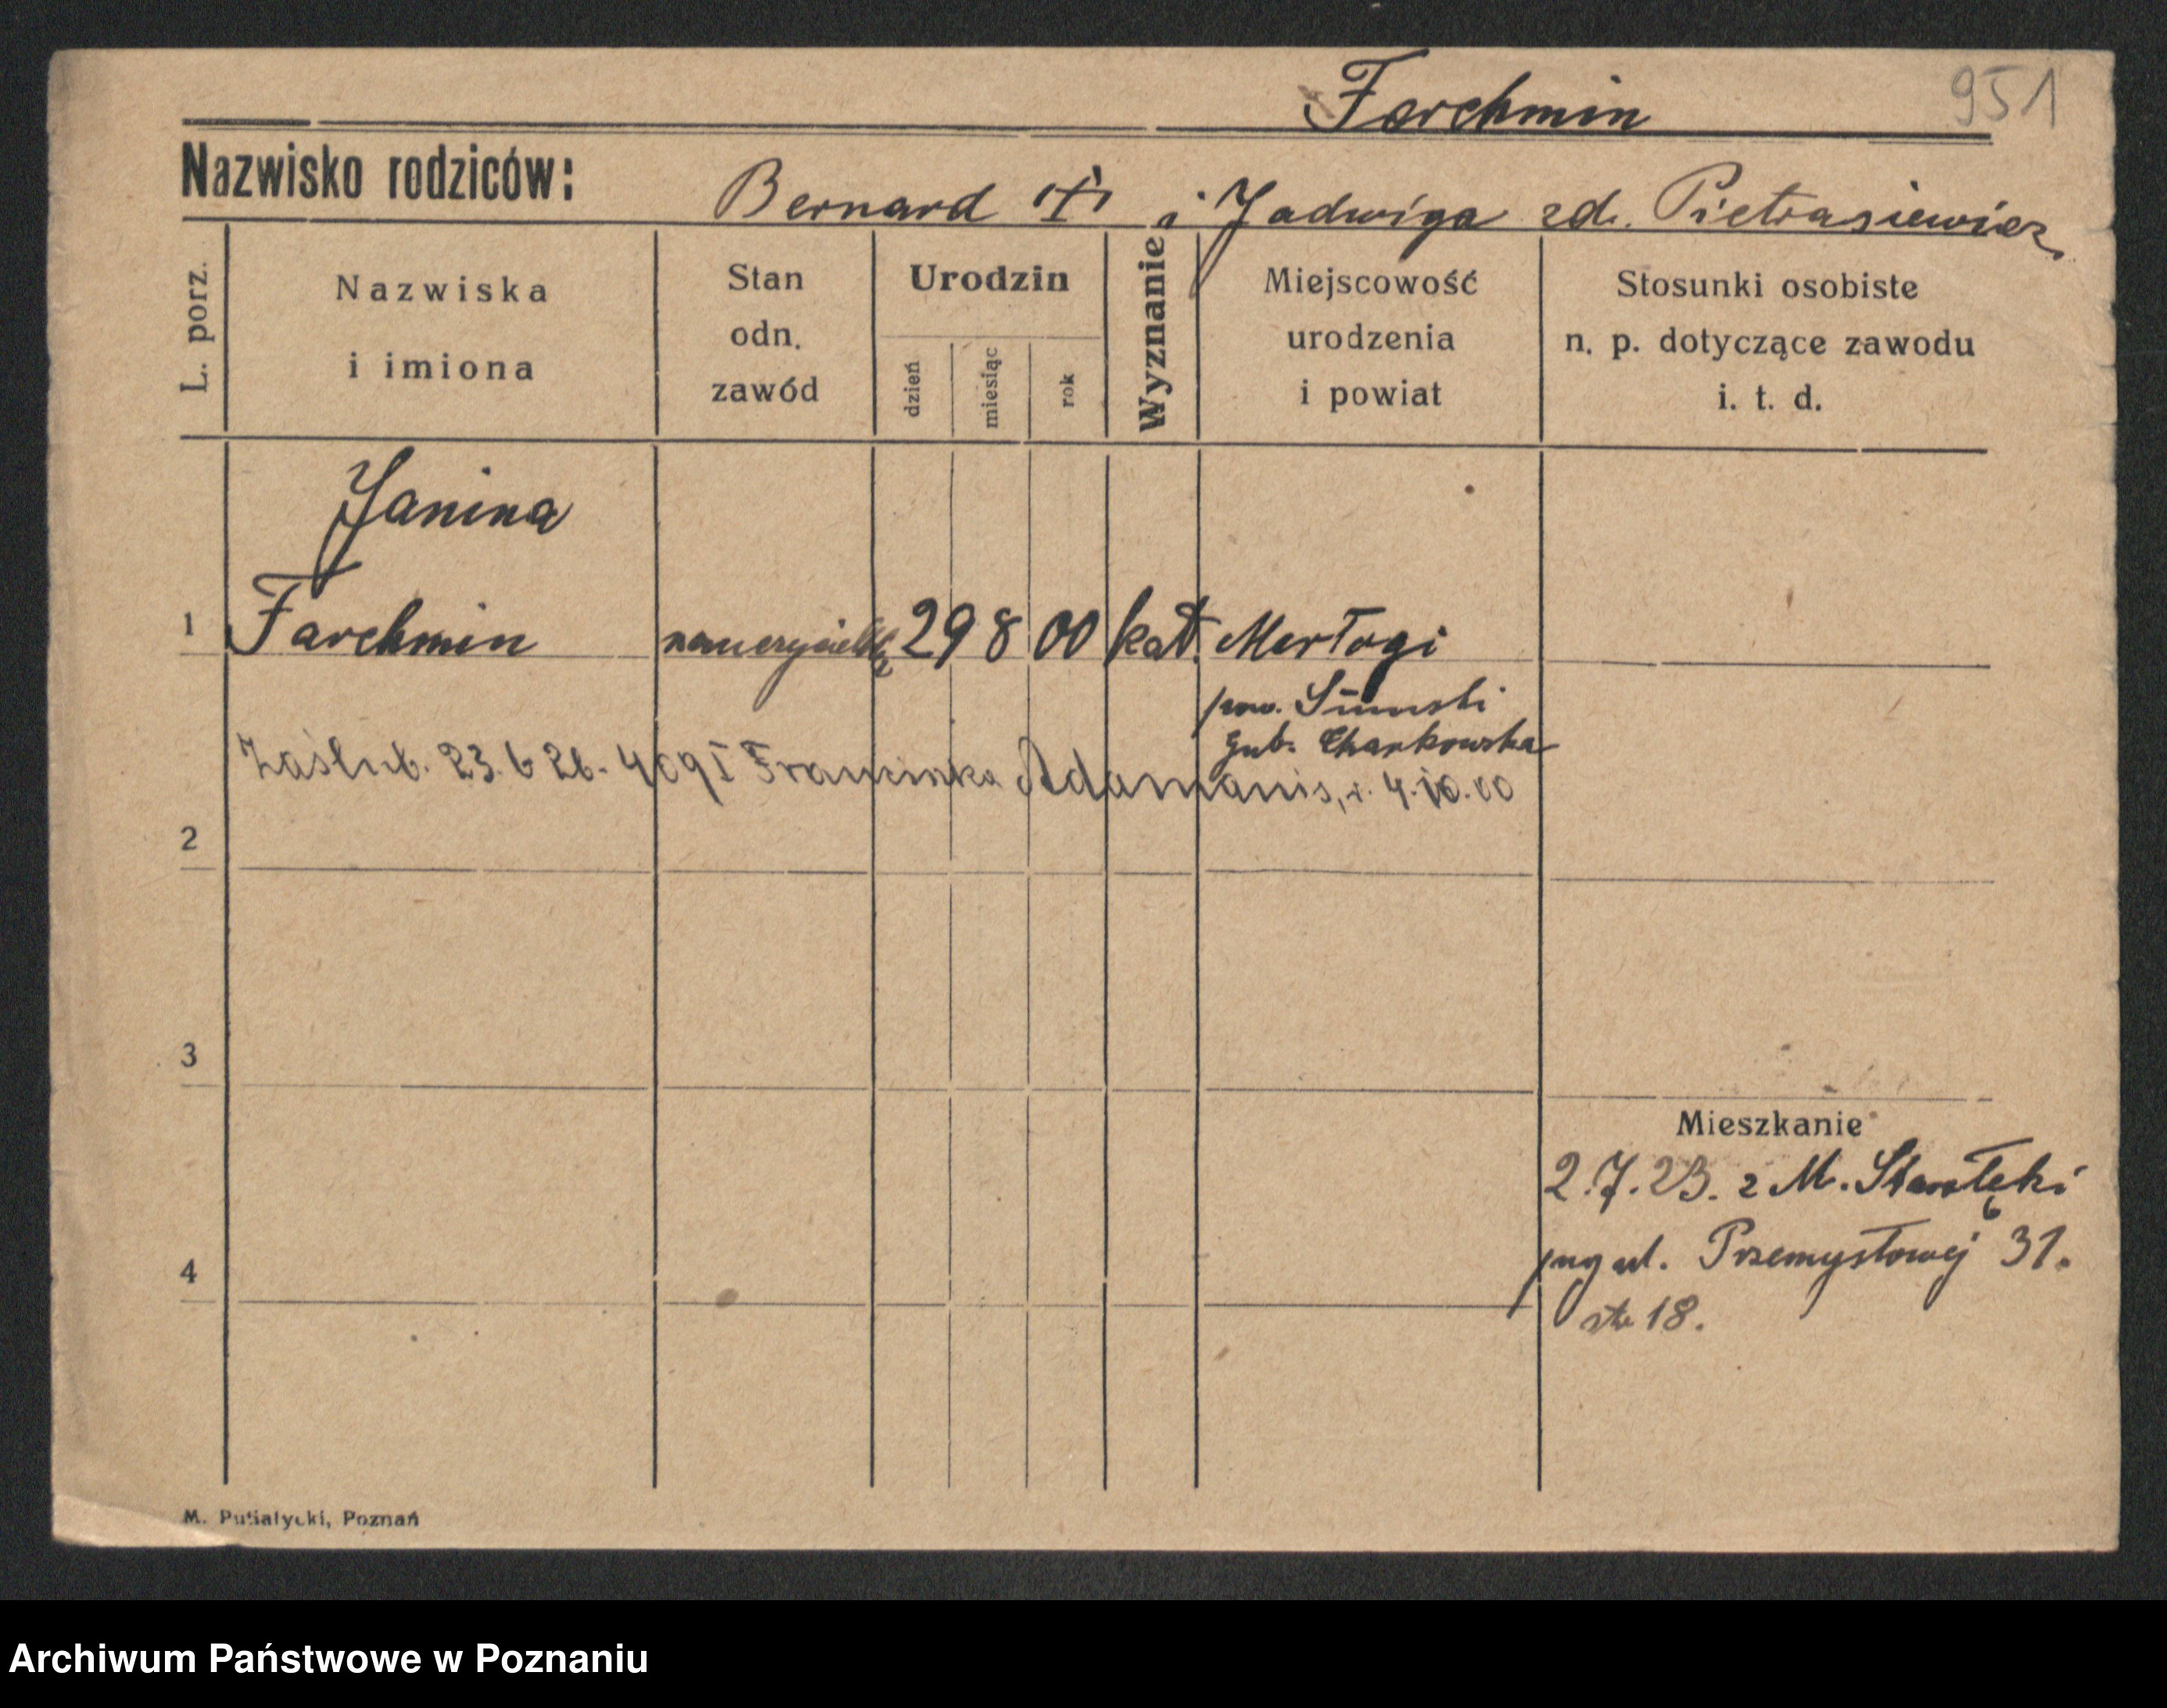 Farchmin 951
Nazwisko rodziców: Bernard i Jadwiga zd. Pietrasiewicz
L. porz.
Nazwiska
i imiona
Stan
odn.
zawód
Urodzin
dzień
miesiąc
rok
Wyznanie
Miejscowość
urodzenia
i powiat
Stosunki osobiste
n. p. dotyczące zawodu
i. t. d.
Janina
1 Farchmin nauczycielka 29 8 00 kat. Merłogi
pow. Sumski
gub. Charkowska
Zaślub. 23. 6 26. 409 I Adamanis, 4.10.00
2
3
Mieszkanie
2.7.23. z M. Starołęki
ul. Przemysłowej 31.
18.
4
M. Putiatycki, Poznań
Archiwum Państwowe w Poznaniu